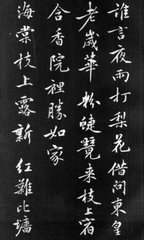 誰言夜雨打梨花借問東皇
老歲華粉蜨覺來枝上宿
含香院裡勝如家
海棠枝上露新紅難比墻